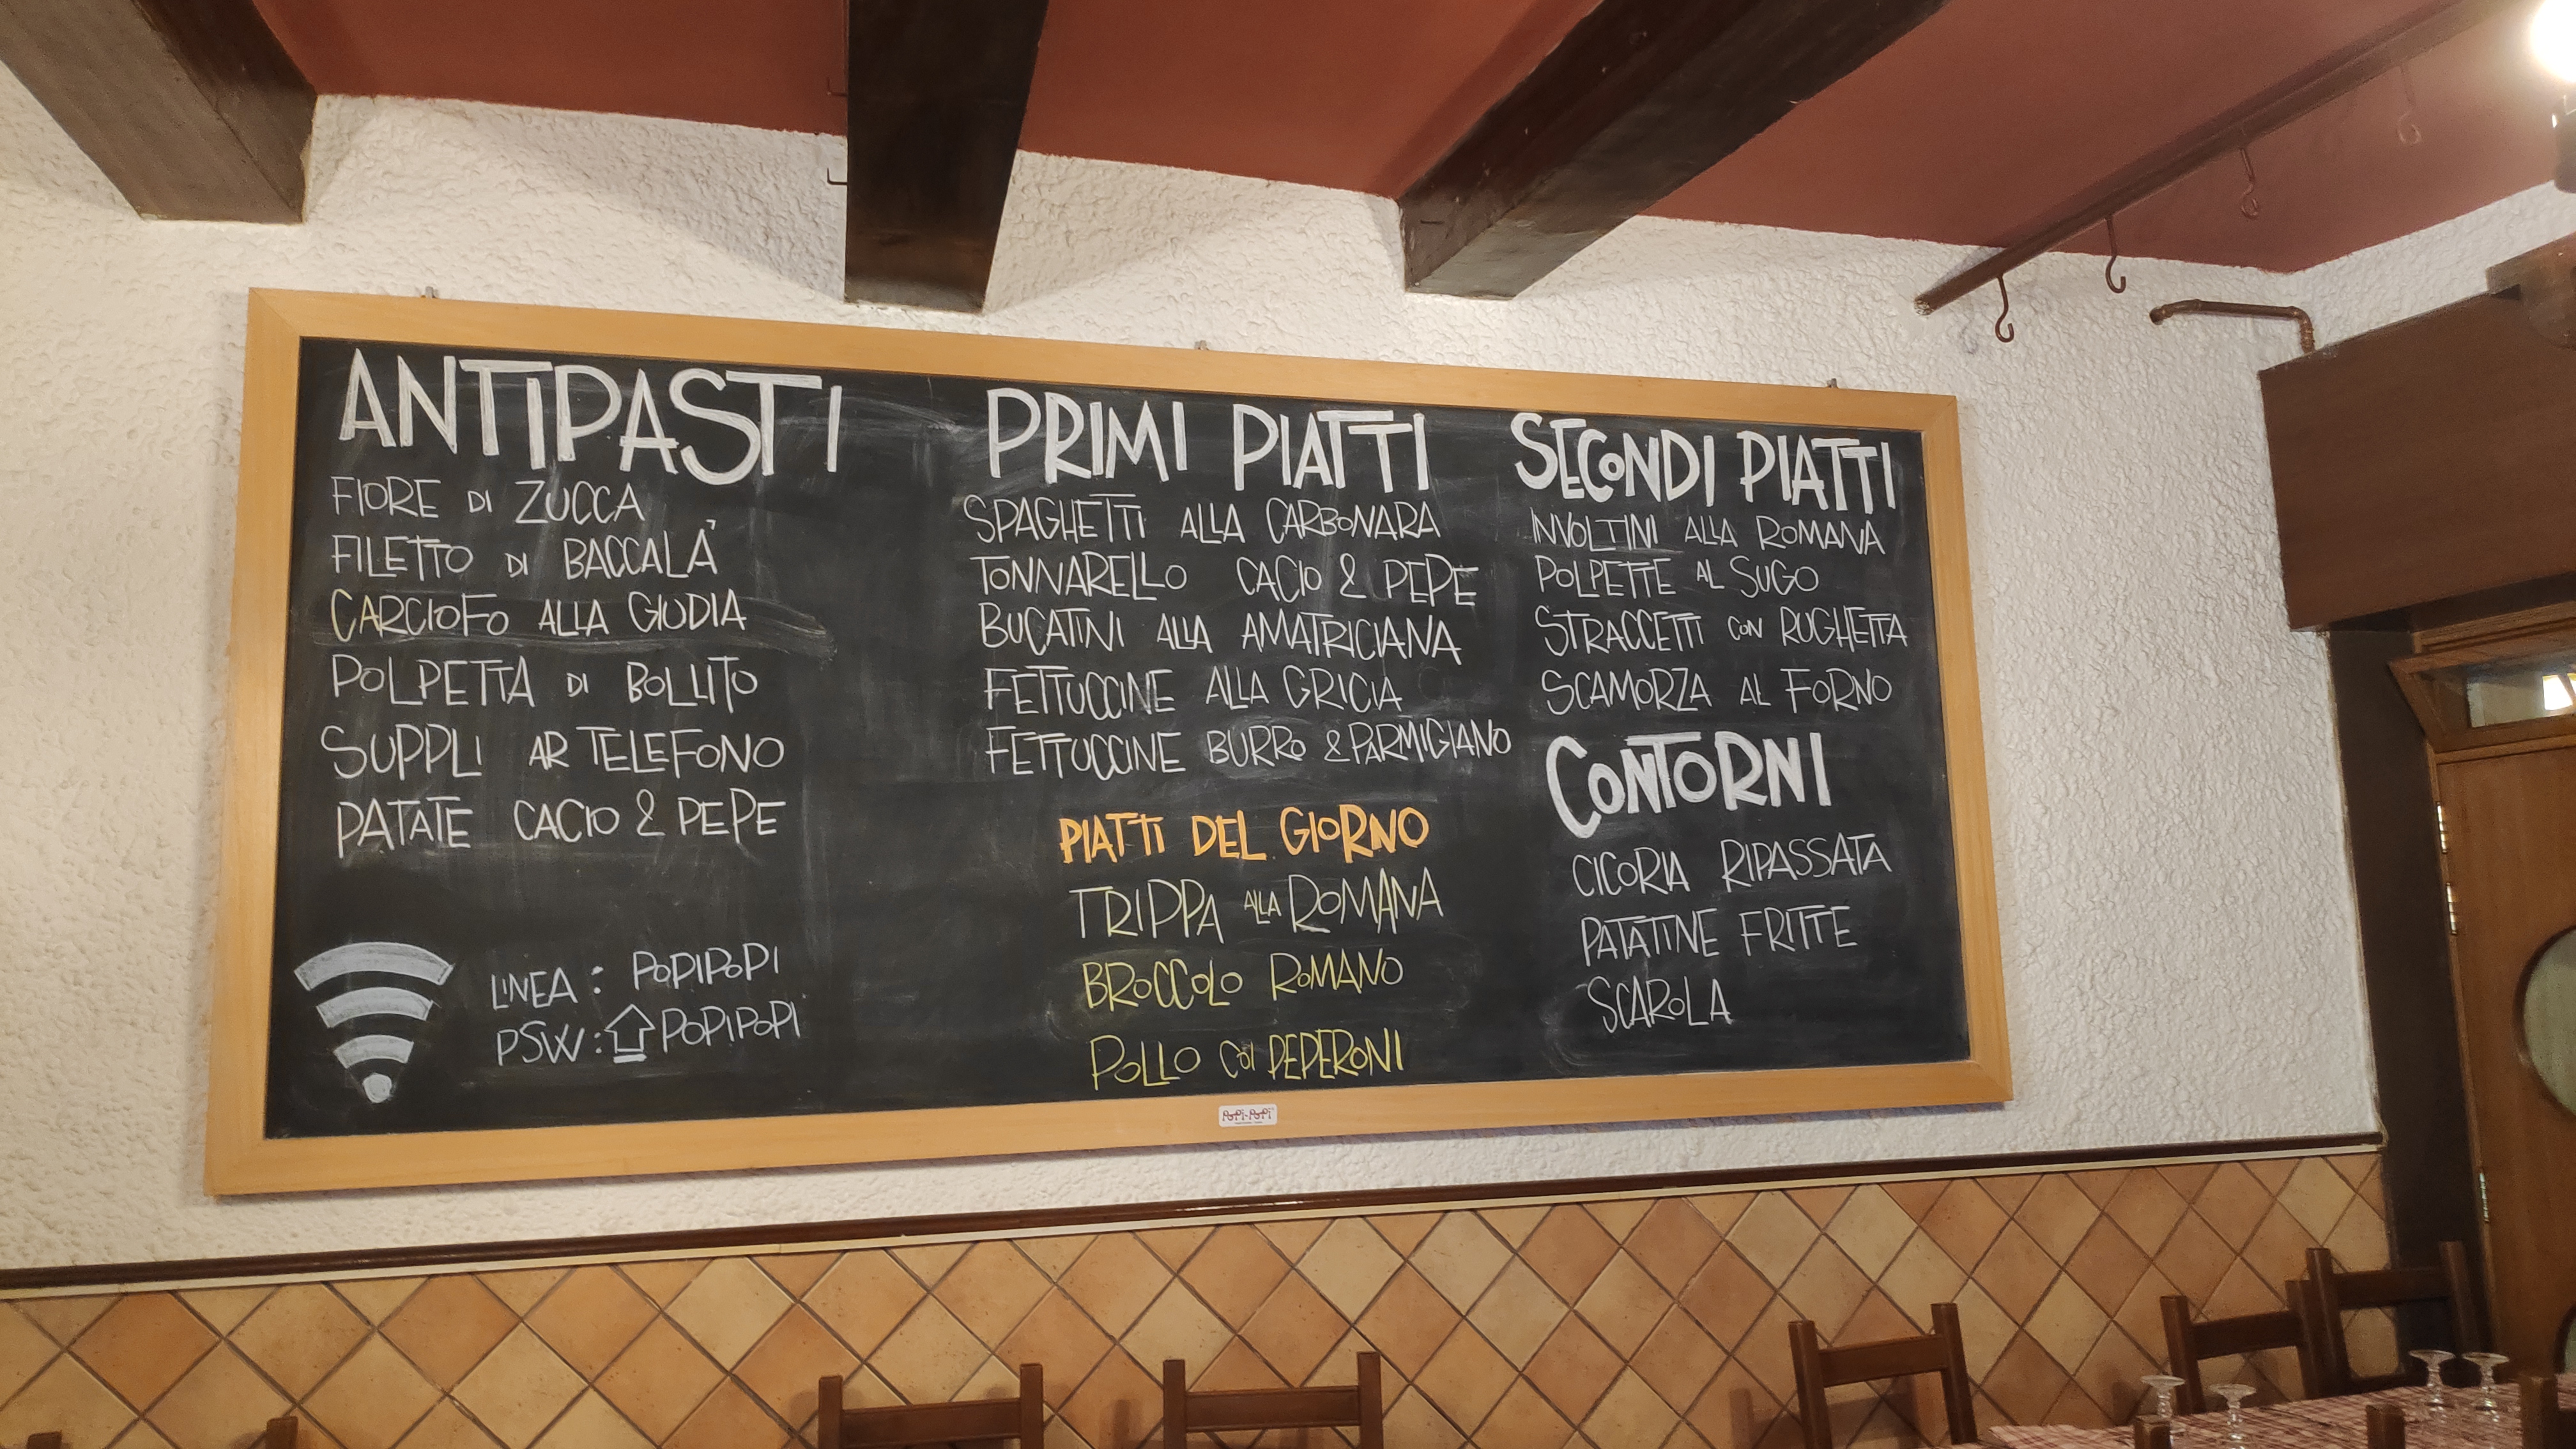 ANTIPASTI
FIORE DI ZUCCA
FILETTO DI BACCALÀ
CARCIOFO ALLA GIUDIA
POLPETTA DI BOLLITO
SUPPLI AR TELEFONO
PATATE CACIO & PEPE
LINEA: POPIPOPI
PSW: POPIPOPI
PRIMI PIATTI
SPAGHETTI ALLA CARBONARA
TONNARELLO CACIO & PEPE
BUCATINI ALLA AMATRICIANA
FETTUCCINE ALLA GRICIA
FETTUCCINE BURRO & PARMIGIANO
PIATTI DEL GIORNO
TRIPPA ALLA ROMANA
BROCCOLO ROMANO
POLLO COI PEPERONI
SECONDI PIATTI
INVOLTINI ALLA ROMANA
POLPETTE AL SUGO
STRACCETTI CON RUGHETTA
SCAMORZA AL FORNO
CONTORNI
CICORIA RIPASSATA
PATATINE FRITTE
SCAROLA
POPI-POPI